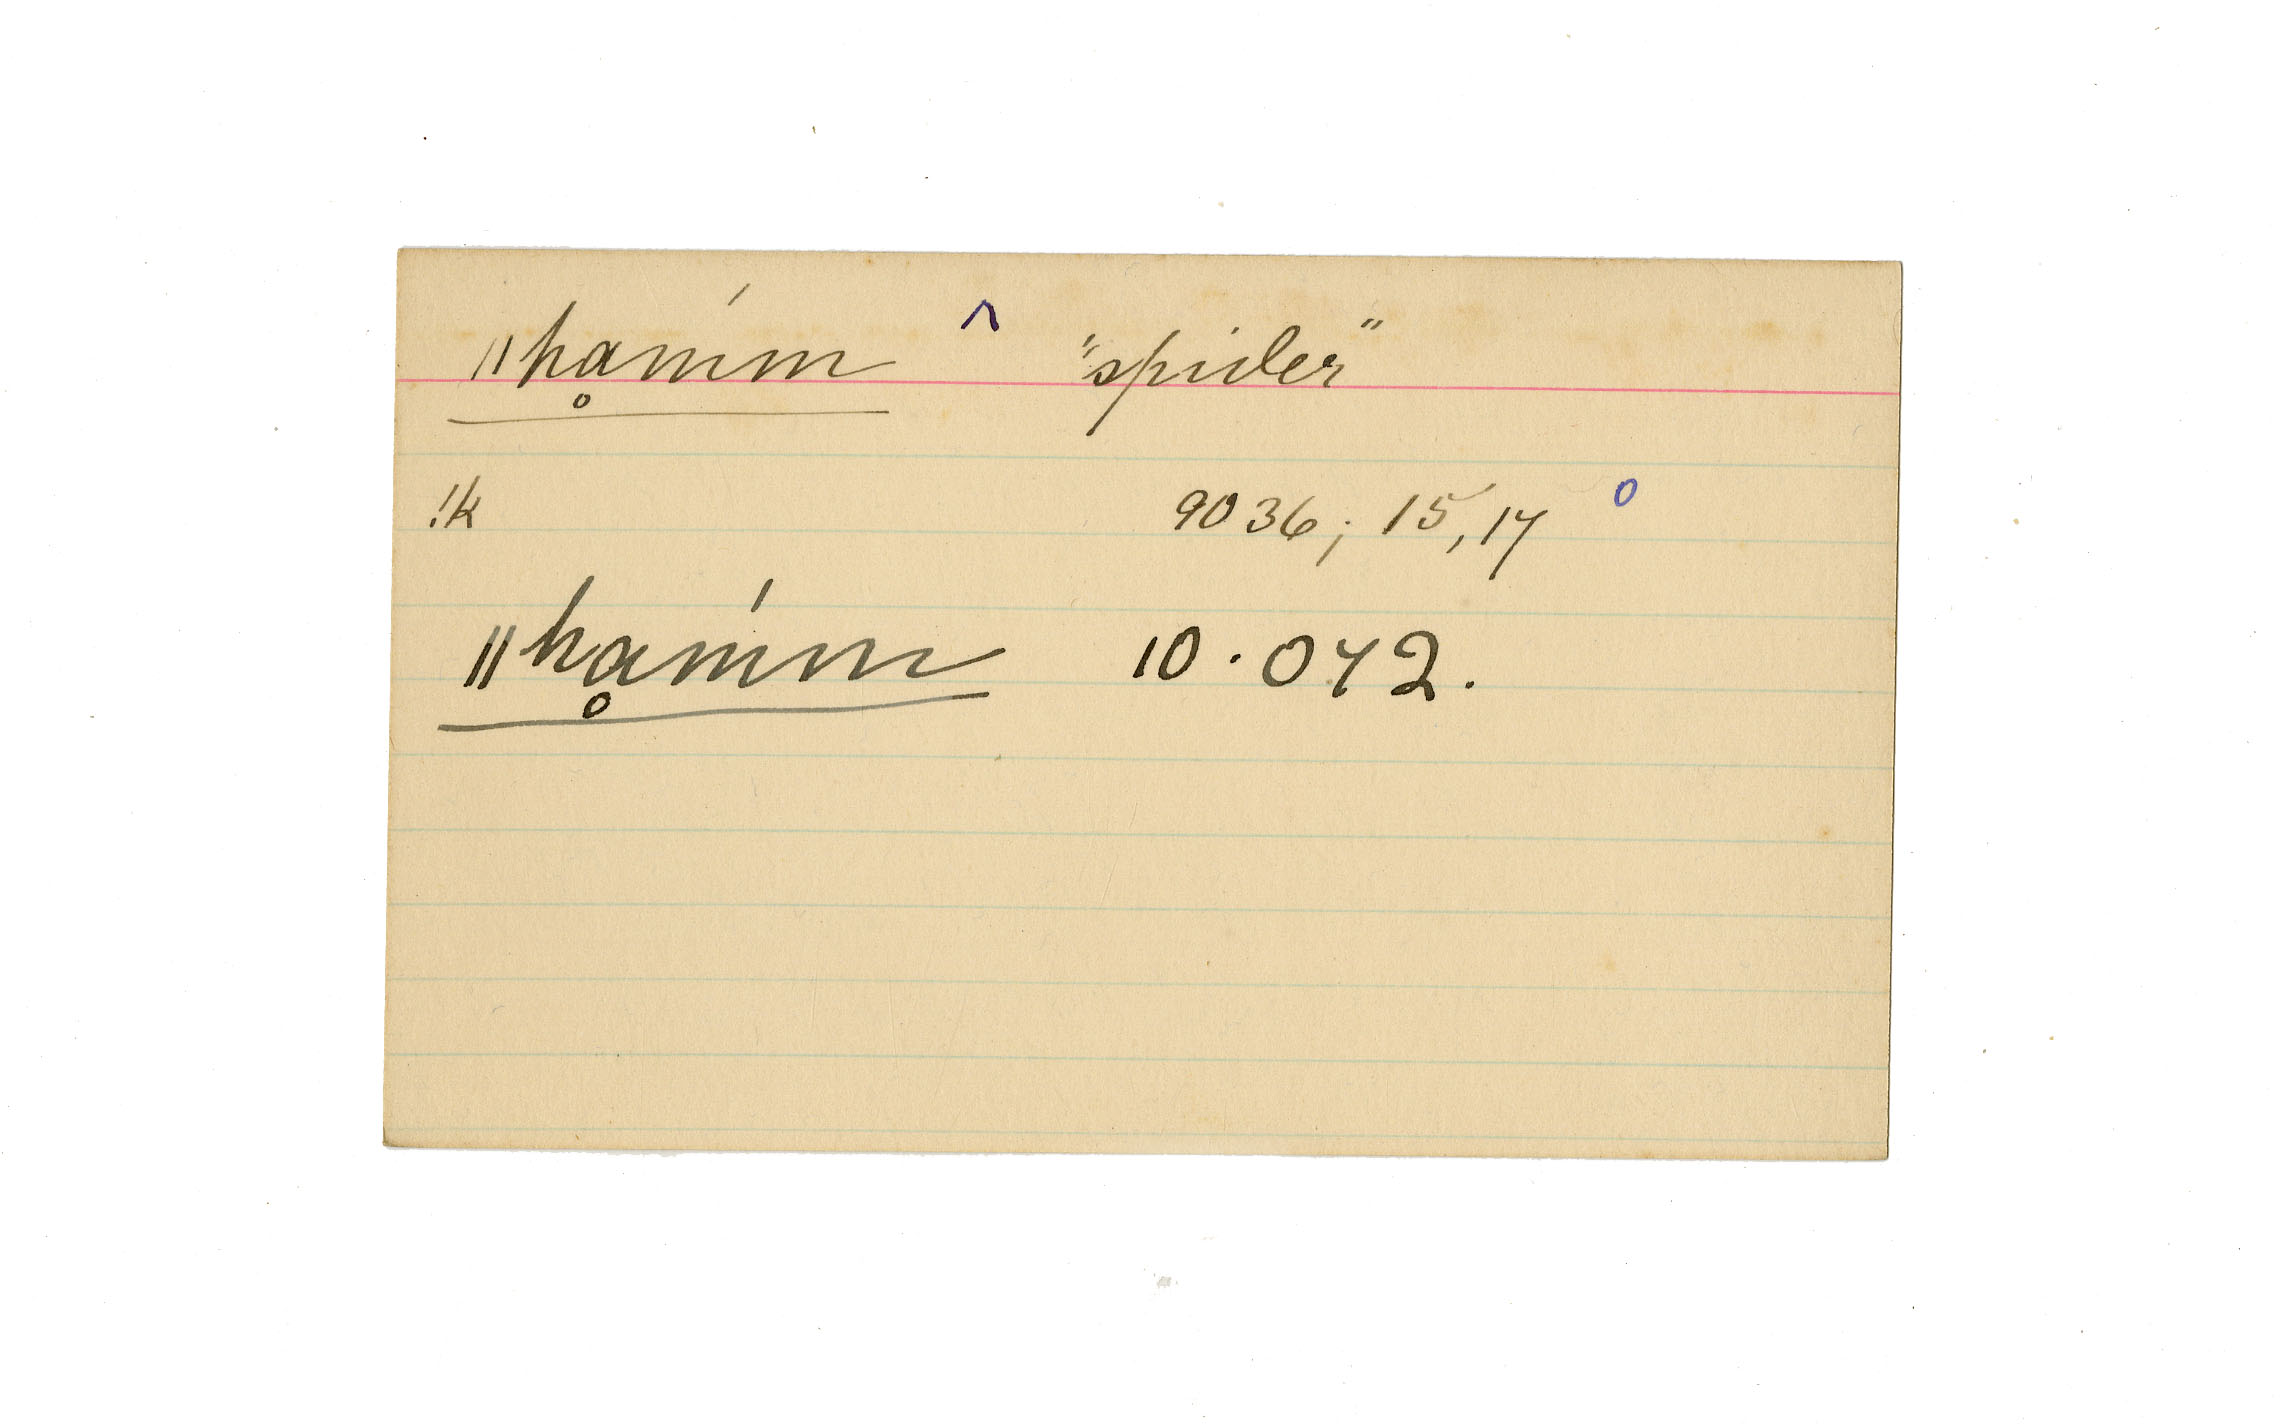 ǁhḁním ^ "spider"
!k 9036; 15, 17 o
ǁhḁním 10.072.